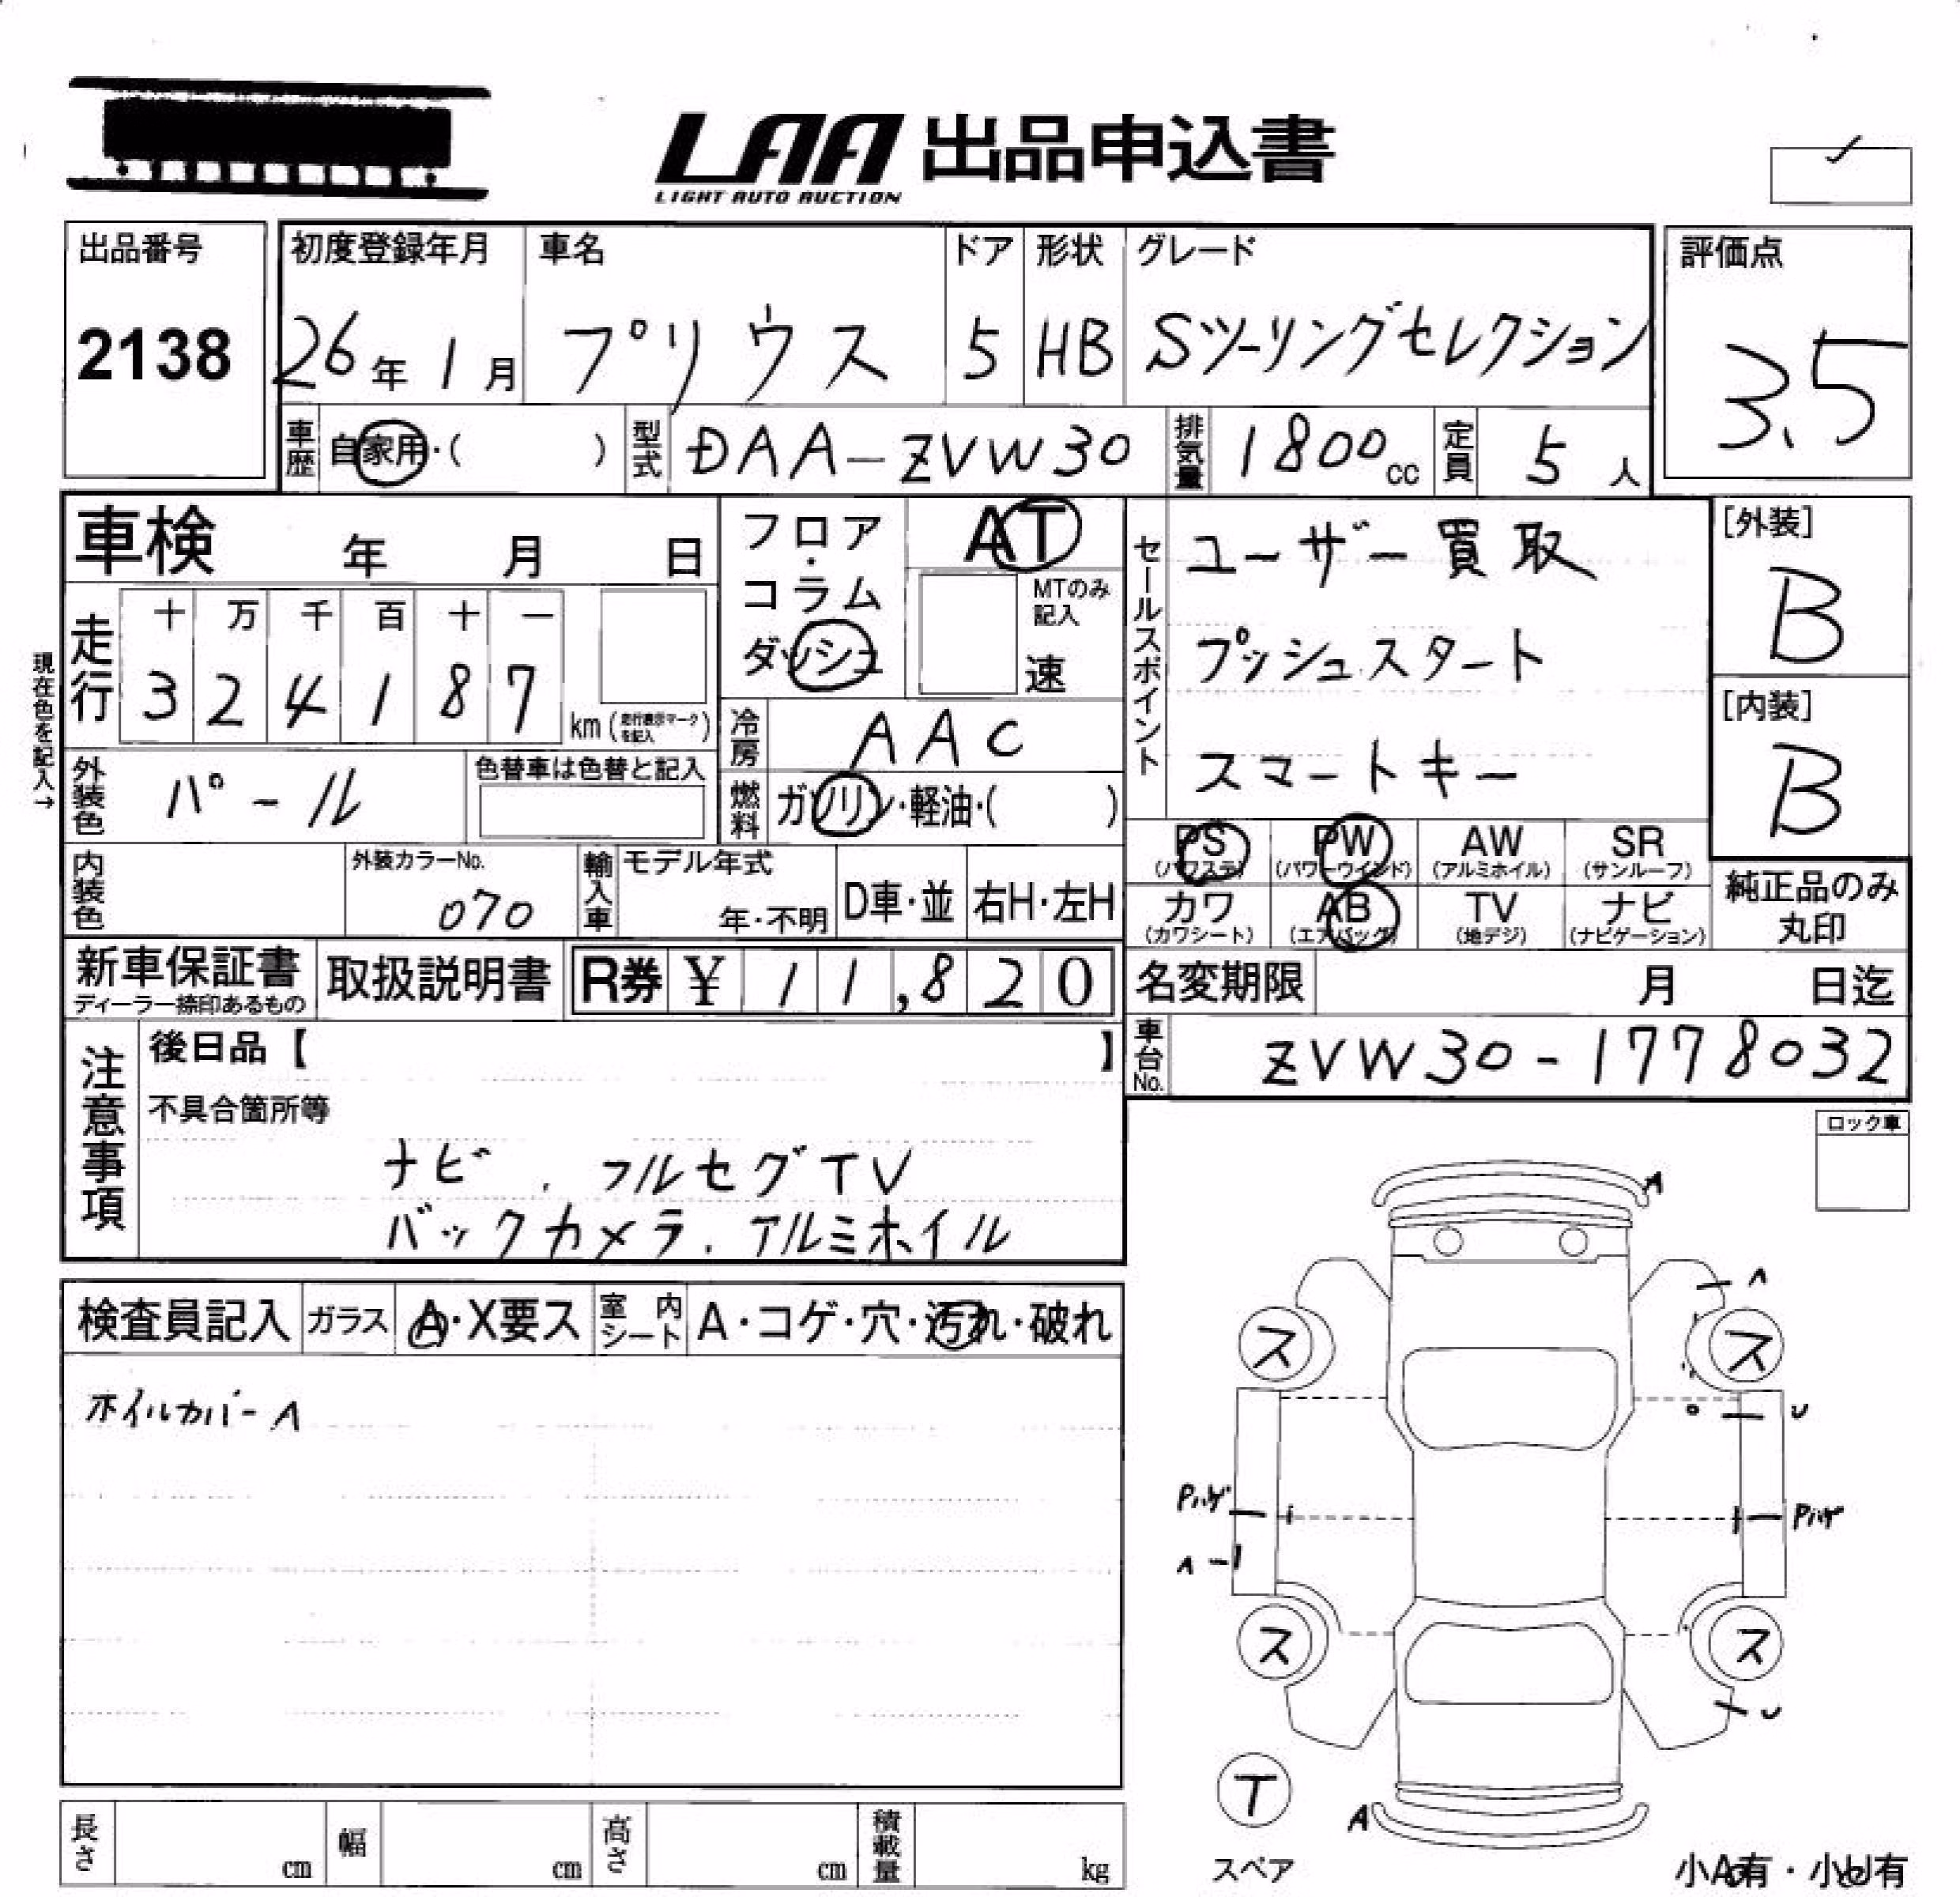 LAA 出品申込書
LIGHT AUTO AUCTION
出品番号
2138
初度登録年月
26年 1月
車名
プリウス
ドア
5
形状
HB
グレード
Sツーリングセレクション
評価点
3.5
車歴
自家用・( )
型式
DAA-ZVW30
排気量
1800cc
定員
5人
車検 年 月 日
フロア・コラム
ダッシュ
AT
MTのみ記入
速
セールスポイント
ユーザー買取
プッシュスタート
スマートキー
[外装]
B
[内装]
B
現在色を記入→
走行
十 万 千 百 十 一
3 2 4 1 8 7
km (走行表示マークを記入)
冷房
AAC
外装色
パール
色替車は色替と記入
燃料
ガソリン・軽油・( )
PS
(パワステ)
PW
(パワーウインド)
AW
(アルミホイル)
SR
(サンルーフ)
カワ
(カワシート)
AB
(エアバッグ)
TV
(地デジ)
ナビ
(ナビゲーション)
純正品のみ
丸印
内装色
外装カラーNo.
070
輸入車
モデル年式
年・不明
D車・並
右H・左H
新車保証書
ディーラー捺印あるもの
取扱説明書
R券 ¥ 11,820
名変期限 月 日迄
車台No.
ZVW30-1778032
注意事項
後日品【 】
不具合箇所等
ナビ. フルセグTV
バックカメラ. アルミホイル
ロック車
検査員記入
ガラス
A・X要ス
室内シート
A・コゲ・穴・汚れ・破れ
ホイルカバーA
A
A
ス
ス
U
Pハゲ
Pハゲ
A
ス
ス
U
T
スペア
A
小A有・小U有
長さ cm
幅 cm
高さ cm
積載量 kg